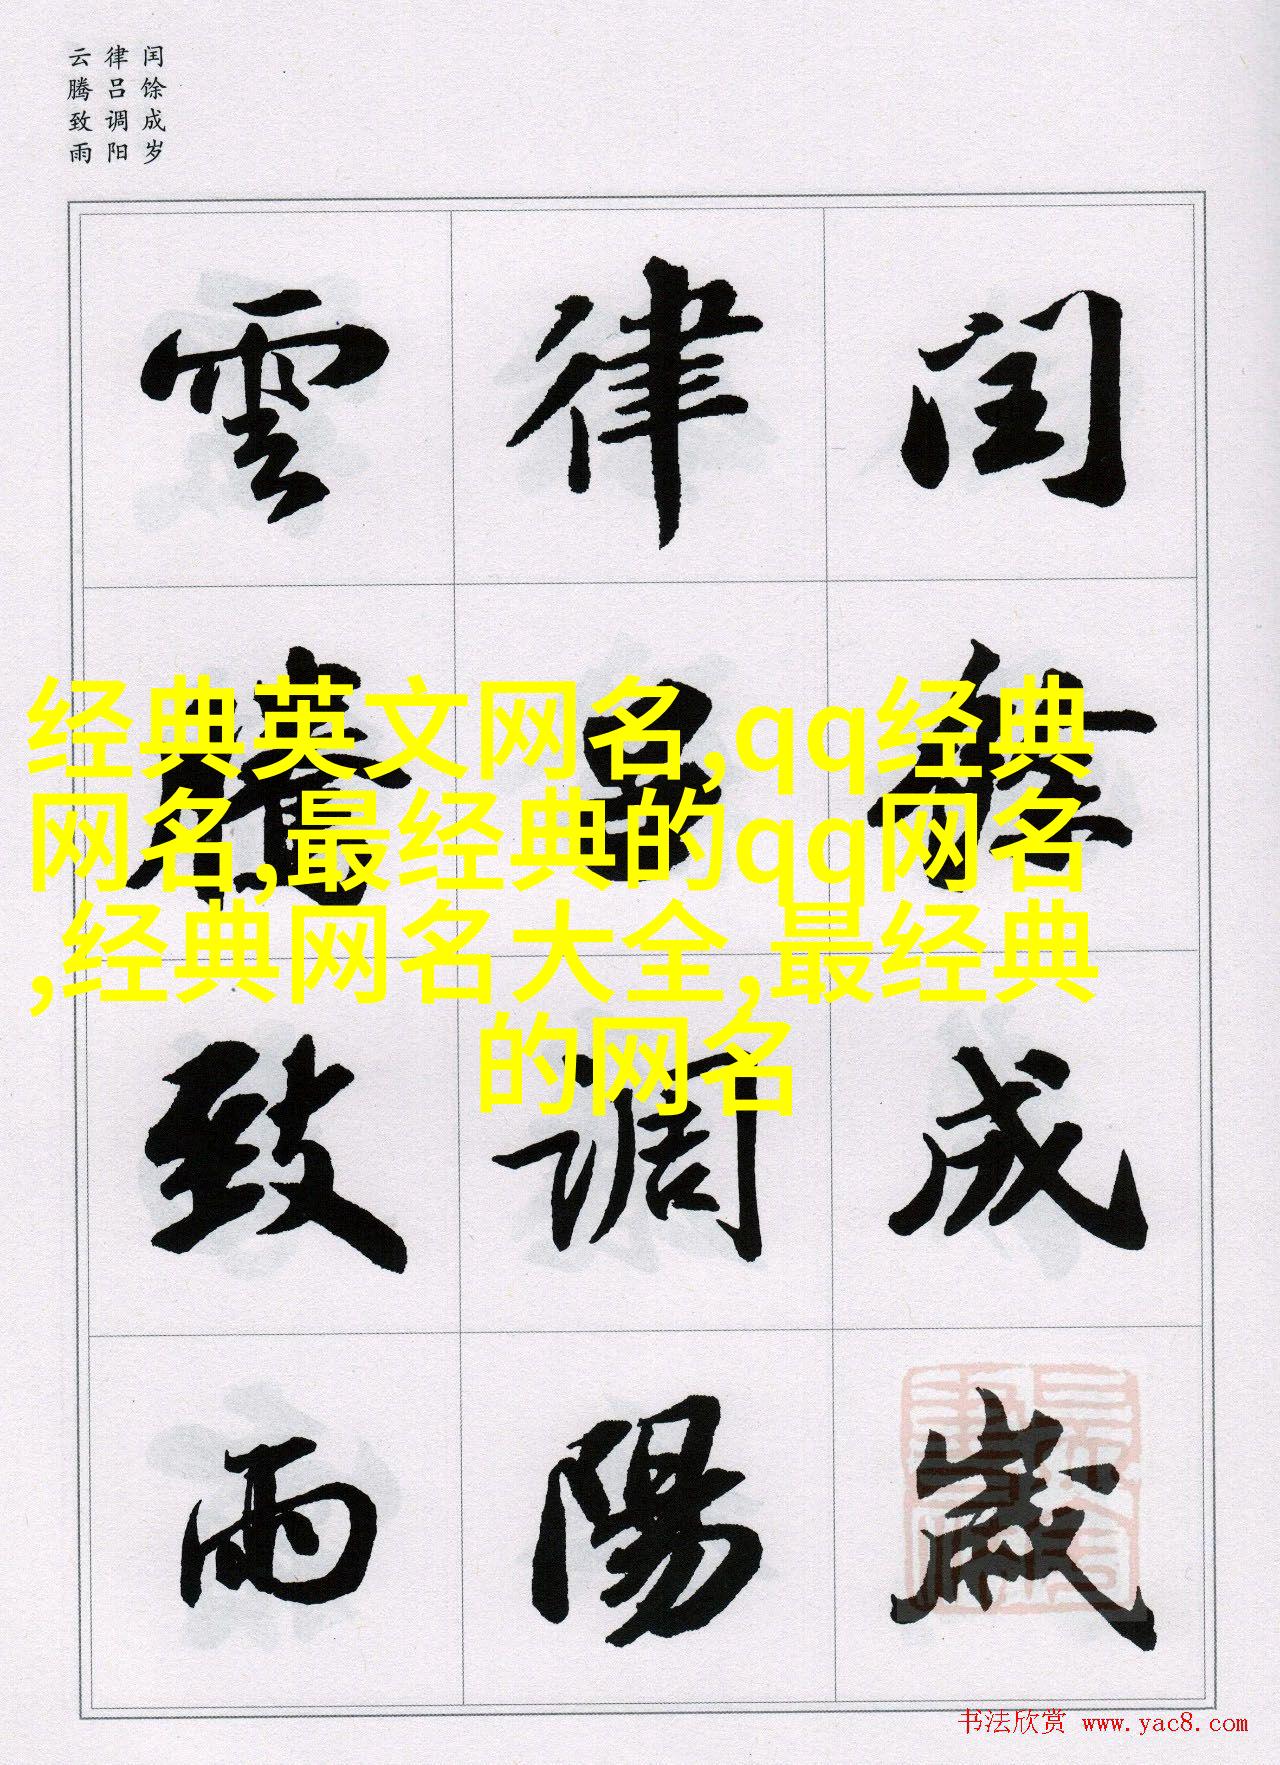 闰馀成岁
律吕调阳
云腾致雨
闰餘成歲
律吕调陽
雲騰致雨
经典英文网名,qq经典
网名,最经典的qq网名
,经典网名大全,最经典
的网名
书法欣赏 www.yac8.com